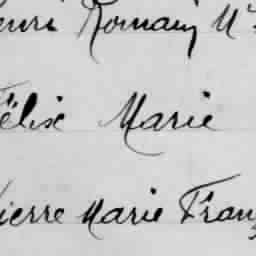 enri Romain M
Félix Marie
Pierre Marie Franç